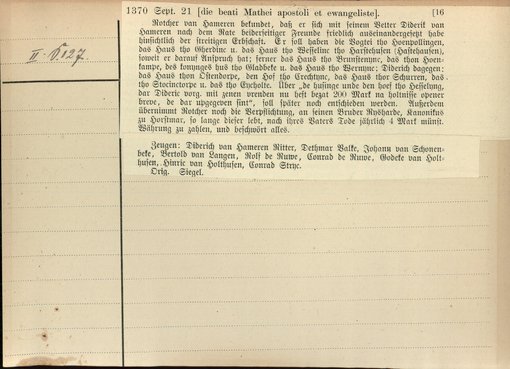 1370 Sept. 21 [die beati Mathei apostoli et ewangeliste]. [16
II. D. 127
Rotcher van Hameren bekundet, daß er sich mit seinem Vetter Diderik van
Hameren nach dem Rate beiderseitiger Freunde friedlich auseinandergesetzt habe
hinsichtlich der streitigen Erbschaft. Er soll haben die Vogtei tho Hoenpollingen,
das Haus tho Gherdinc u. das Haus tho Wesselinc tho Harstehusen (Hastehausen),
soweit er darauf Anspruch hat; ferner das Haus tho Brunstemne, das thon Hoen-
kampe, des konynges hus tho Gladbeke u. das Haus tho Wermync; Diderich dagegen:
das Haus thon Ostendorpe, den Hof tho Grechtync, das Haus thor Schurren, das
tho Stveinctorpe u. das tho Eycholte. Über „de husinge unde den hof tho Hesselyng,
dar Dideric vorg. mit zenen vrenden nu hest bezat 200 Mark na holtnisse opener
breve, de dar upgegeven sint“, soll später noch entschieden werden. Außerdem
übernimmt Rotcher noch die Verpflichtung, an seinen Bruder Rysharde, Kanonikus
zu Horstmar, so lange dieser lebt, nach ihres Vaters Tode jährlich 4 Mark münst.
Währung zu zahlen, und beschwört alles.
Zeugen: Diderich van Hameren Ritter, Dethmar Valke, Johann van Schonen-
beke, Bertold van Langen, Rolf de Ruwe, Conrad de Ruwe, Godeke van Holt-
husen, Hinric van Holthusen, Conrad Stryc.
Orig. Siegel.